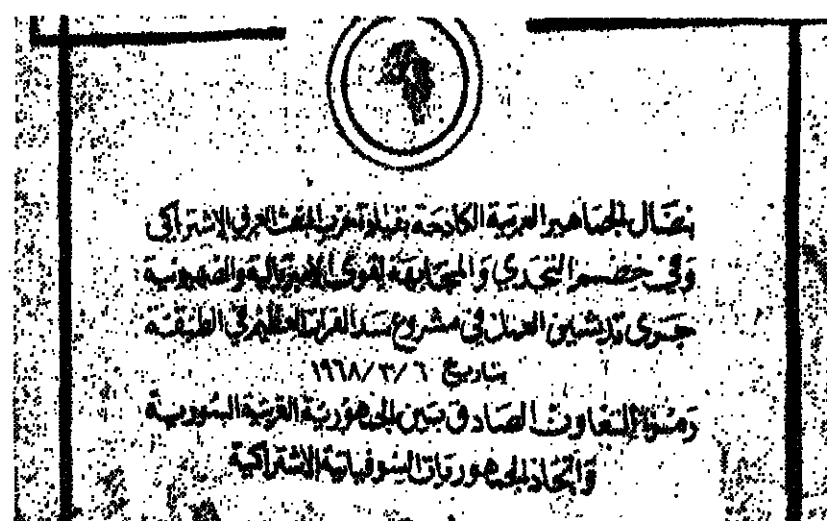 بنضال الجماهير العربية الكادحة بقيادة حزب البعث العربي الإشتراكي
وفي خضم التحدي والمجابهة لقوى الإمبريالية والصهيونية
جرى تدشين العمل في مشروع سد الفرات العظيم في الطبقة
بتاريخ ٦/٣/١٩٦٨
رمزا للتعاون الصادق بين الجمهورية العربية السورية
واتحاد الجمهوريات السوفياتية الإشتراكية